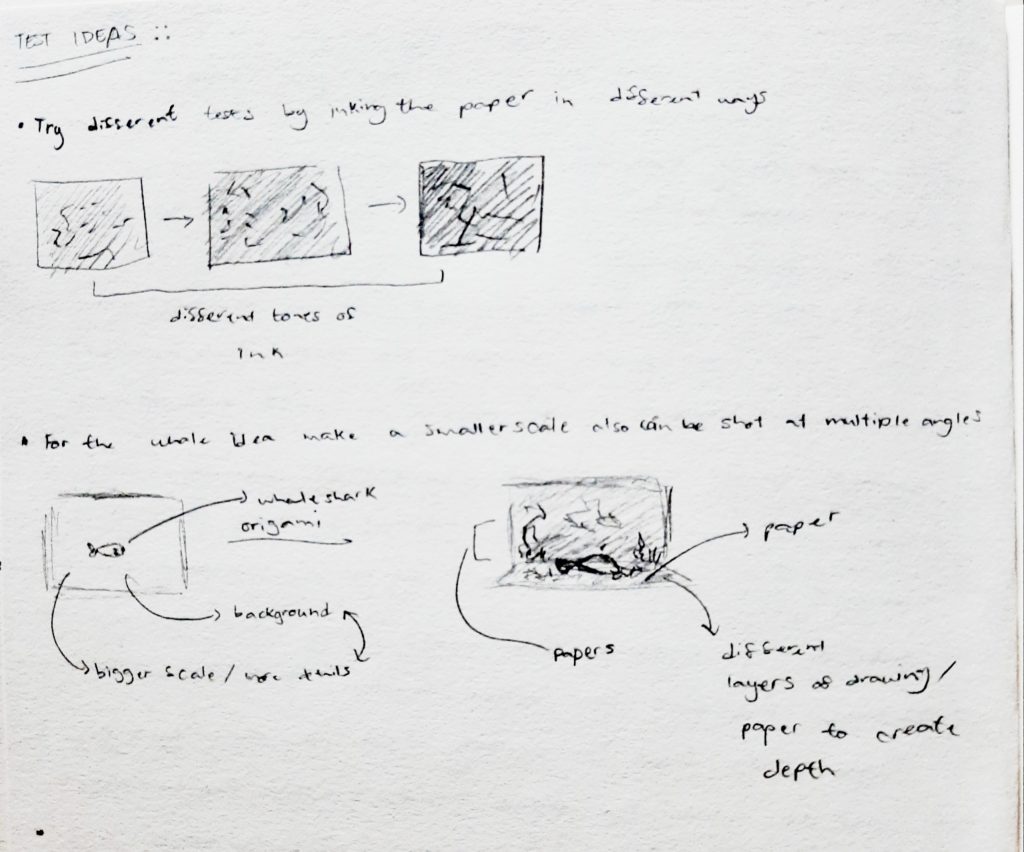 TEST IDEAS ::
• Try different tests by inking the paper in different ways
different tones of
ink
• For the whole idea make a smaller scale also can be shot at multiple angles
whale shark
origami
background
bigger scale / more details
paper
papers
different
layers of drawing /
paper to create
depth